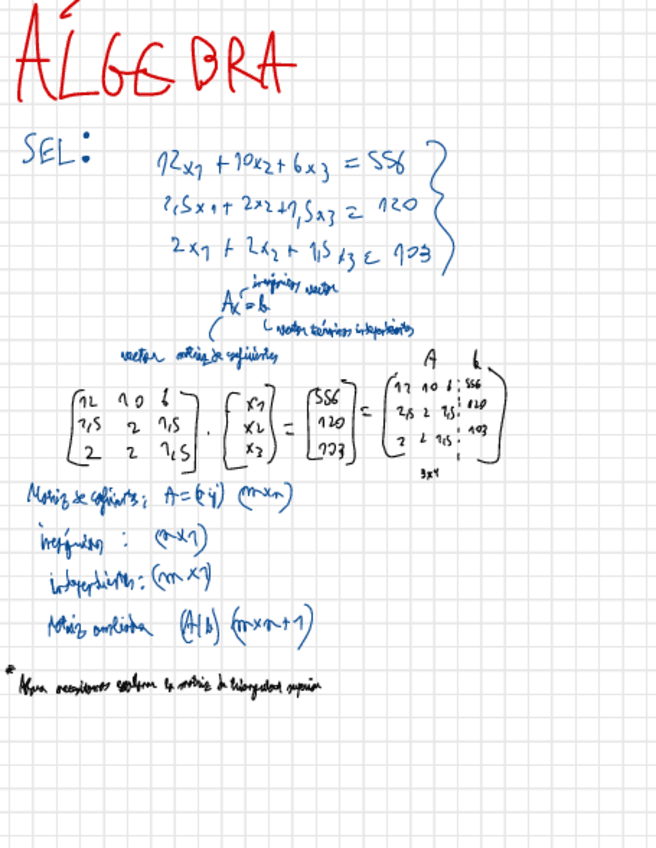 ÁLGEBRA
SEL:
12x1 + 10x2 + 6x3 = 556
2,5x1 + 2x2 + 1,5x3 = 120
2x1 + 2x2 + 1,5x3 = 103
incógnitas vector
Ax = b
vector términos independientes
vector matriz de coeficientes
A b
12 10 6 x1 556 12 10 6 556
2,5 2 1,5 · x2 = 120 = 2,5 2 1,5 120
2 2 1,5 x3 103 2 2 1,5 103
3x4
Matriz de coeficientes: A = (aij) (mxn)
incógnitas : (nx1)
independientes: (mx1)
Matriz ampliada (A|b) (mxn+1)
* Ahora necesitamos la matriz de triangular superior